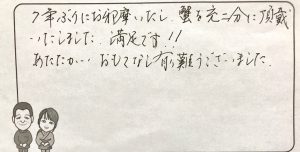 7年ぶりにお邪魔いたし、蟹を充二分に頂戴
いたしました。満足です!!
あたたかい おもてなし有難うございました。